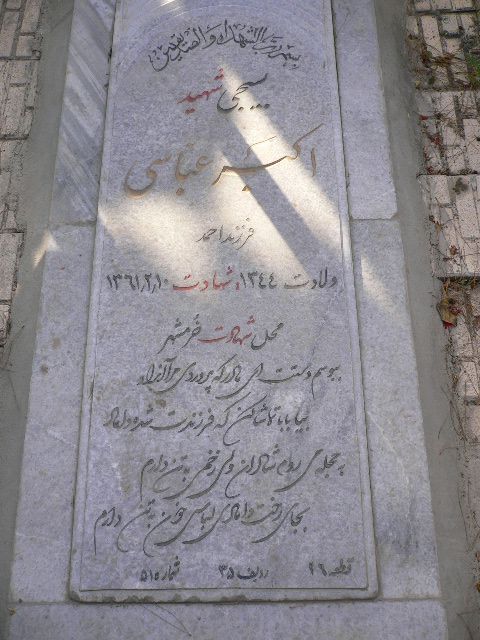 بسم رب الشهداء والصدیقین
بسیجی شهید
اکبر عباسی
فرزند احمد
ولادت ۱۳۴۴ شهادت ۱۳۶۱٫۲٫۱۰
محل شهادت خرمشهر
ببوسم دستت ای مادر که پروردی مرا آزاد
بیا بابا تماشا کن که فرزندت شده داماد
به حجله می روم شادان ولی زخمی به تن دارم
بجای رخت دامادی لباسی خون بتن دارم
قطعه ۲۶ ردیف ۳۵ شماره ۵۱